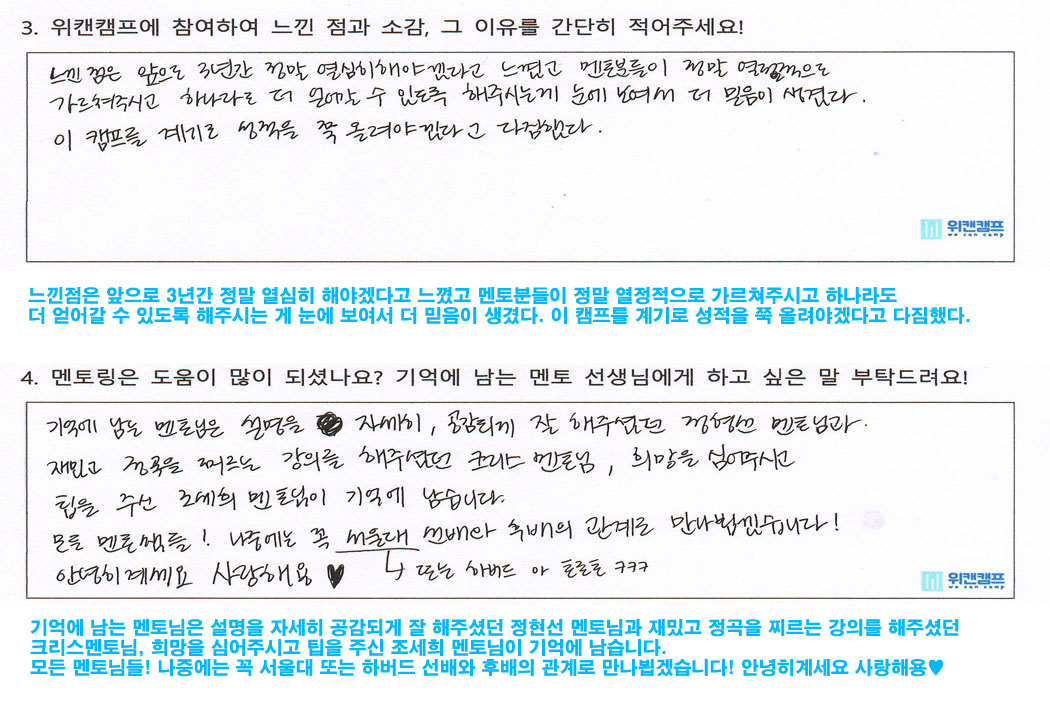 3. 위캔캠프에 참여하여 느낀 점과 소감, 그 이유를 간단히 적어주세요!
느낀점은 앞으로 3년간 정말 열심히해야겠다고 느꼈고 멘토분들이 정말 열정적으로
가르쳐주시고 하나라도 더 얻어갈 수 있도록 해주시는게 눈에 보여서 더 믿음이 생겼다.
이 캠프를 계기로 성적을 쭉 올려야겠다고 다짐했다.
위캔캠프
we can camp
느낀점은 앞으로 3년간 정말 열심히 해야겠다고 느꼈고 멘토분들이 정말 열정적으로 가르쳐주시고 하나라도
더 얻어갈 수 있도록 해주시는 게 눈에 보여서 더 믿음이 생겼다. 이 캠프를 계기로 성적을 쭉 올려야겠다고 다짐했다.
4. 멘토링은 도움이 많이 되셨나요? 기억에 남는 멘토 선생님에게 하고 싶은 말 부탁드려요!
기억에 남는 멘토님은 설명을 자세히, 공감되게 잘 해주셨던 정현선 멘토님과
재밌고 정곡을 찌르는 강의를 해주셨던 크리스 멘토님, 희망을 심어주시고
팁을 주신 조세희 멘토님이 기억에 남습니다.
모든 멘토쌤들! 나중에는 꼭 서울대 선배와 후배의 관계로 만나뵙겠습니다!
안녕히계세요 사랑해용♥ ↳ 또는 하버드 아 토로토 ㅋㅋㅋ
위캔캠프
we can camp
기억에 남는 멘토님은 설명을 자세히 공감되게 잘 해주셨던 정현선 멘토님과 재밌고 정곡을 찌르는 강의를 해주셨던
크리스멘토님, 희망을 심어주시고 팁을 주신 조세희 멘토님이 기억에 남습니다.
모든 멘토님들! 나중에는 꼭 서울대 또는 하버드 선배와 후배의 관계로 만나뵙겠습니다! 안녕히계세요 사랑해용♥